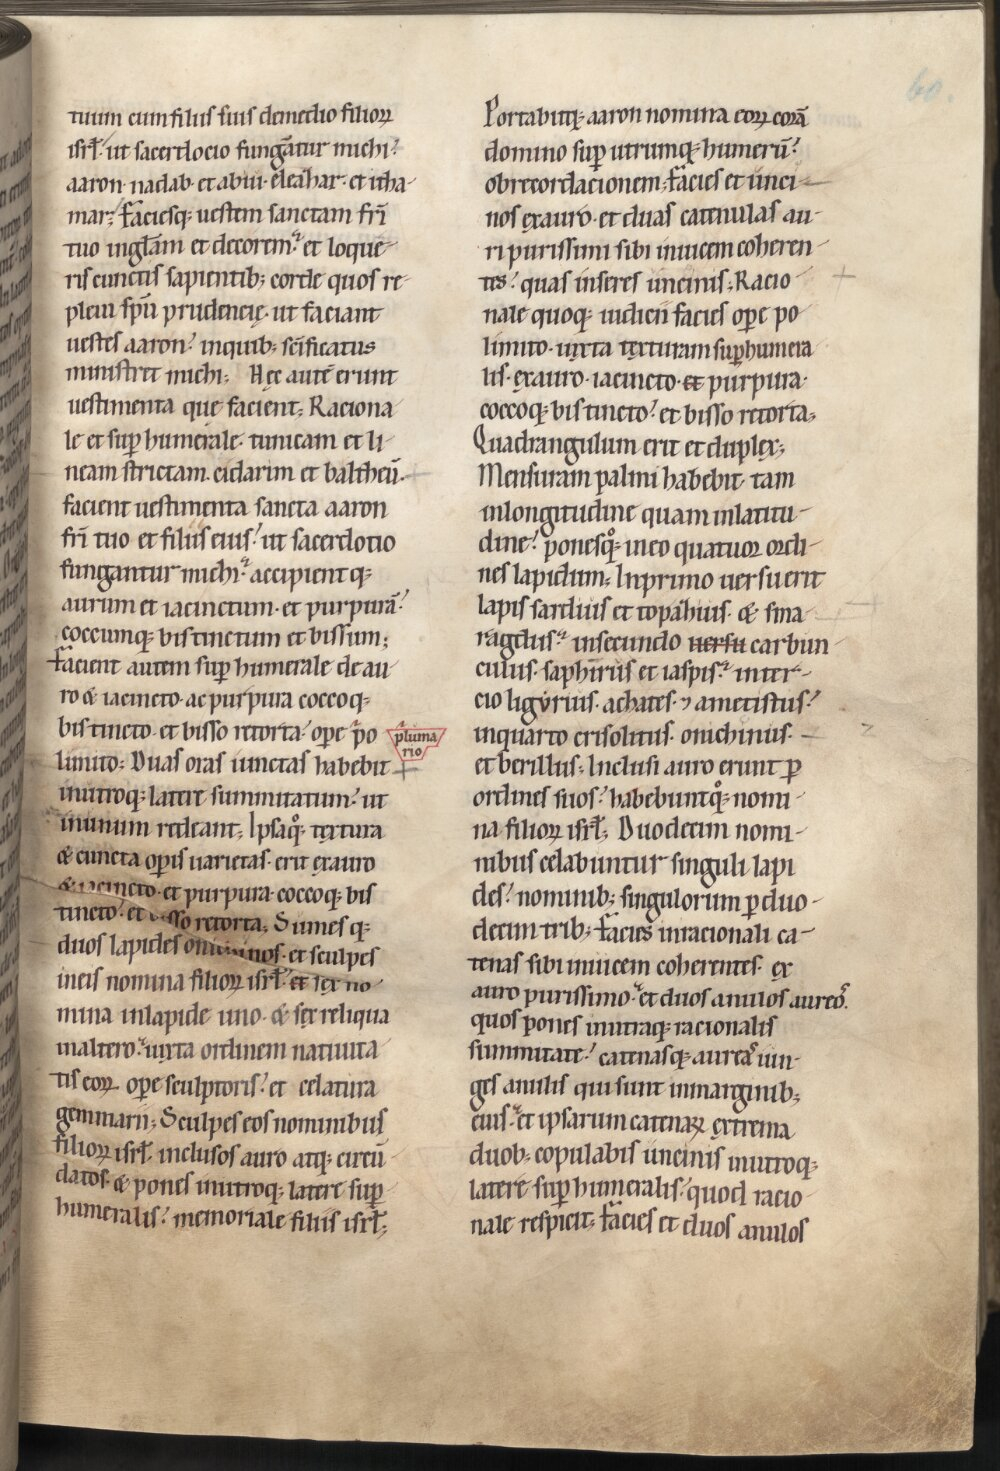 tuum cum filiis suis demedio filioꝝ
isrl̄ ut sacerdocio fungāntur michi?
aaron· nadab· et abiu· eleahar· et itha-
mar; faciesq; uestem sanctam fr̄i
tuo inglām et decorem? et loque-
ris cunctis sapientib; corde quos re-
pleui sp̄u prudencię· ut faciant
uestes aaron? inquib; sc̄ificatus
ministret michi; Hęc autē erunt
uestimenta que facient; Raciona
le et sup̄ humerale· tunicam et li-
neam strictam· cidarim et baltheū·
facient uestimenta sancta aaron
fr̄i tuo et filiis eius? ut sacerdotio
fungantur michi? accipientq;
aurum et iacinctum· et purpurā?
coccumq; bis tinctum et bissum;
Facient autem sup̄ humerale de au
ro & iacincto· ac purpura coccoq;
bis tincto· et bisso retorta· ope p̄o
pluma
rio
limito; Duas oras iunctas habebit
inutroq; latere summitatum? ut
inunum redeant; Ipsaq̊; textura
& cuncta op̄is uarietas· erit ęxauro
& iacincto· et purpura· coccoq; bis
tincto? et bisso retorta; Sumesq;
duos lapides onichinos· et sculpes
ineis nomina filioꝝ isrl̄· et sex no
mina inlapide uno· & sex reliqua
inaltero? iuxta ordinem natiuita
tis eoꝝ ope sculptoris? et celatura
gemmarii; Sculpes eos nominibus
filioꝝ isrl̄· inclusos auro atq; circū
datos· & pones inutroq; latere sup̄
humeralis? memoriale filiis isrl̄;
Portabitq; aaron nomina eoꝝ corā
domino sup̄ utrumq; humerū?
obrecordacionem; facies et unci-
nos ęxauro· et duas catenulas au-
ri purissimi sibi inuicem coheren-
tes? quas inseres uncinis; Racio
nale quoq; iudicii facies ope po
limito· iuxta texturam sup̄humera
lis· ęxauro· iacincto· et purpura·
coccoq; bis tincto? et bisso retorta;
Quadrangulum erit et duplex;
Mensuram palmi habebit· tam
inlongitudine quam inlatitu-
dine? ponesq̊; ineo quatuor ordi-
nes lapidum; Inprimo uersu erit
lapis sardius et topahius· & sma-
ragdus? insecundo uersu carbun
culus· saphirus et iaspis? inter-
cio ligyrius· achates· ⁊ ametistus?
inquarto crisolitus· onichinus·
et berillus; Inclusi auro erunt ꝑ
ordines suos? habebuntq̊; nomi-
na filioꝝ isrl̄; Duodecim nomi-
nibus celabuntur singuli lapi
des? nominib; singulorum ꝑ duo-
decim trib; facies inracionali ca-
tenas sibi inuicem coherentes· ęx
auro purissimo? et duos anulos aureos̊.
quos pones inutraq; racionalis
summitate? catenasq; aureas̊ iun-
ges anulis qui sunt inmarginib;
eius? et ipsarum catenaꝝ ęxtrema
duob; copulabis uncinis inutroq;
latere sup̄ humeralis? quod racio-
nale respicit; facies et duos anulos
60.